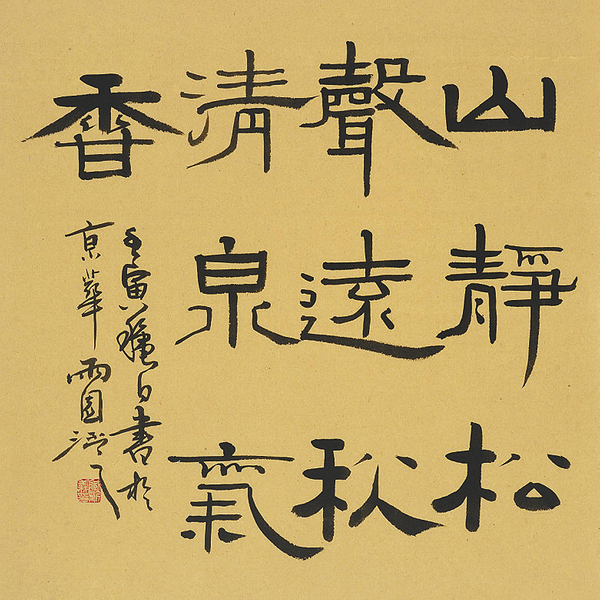 山靜松
聲遠秋
清泉氣
香
壬寅穐日書於
京華雨園